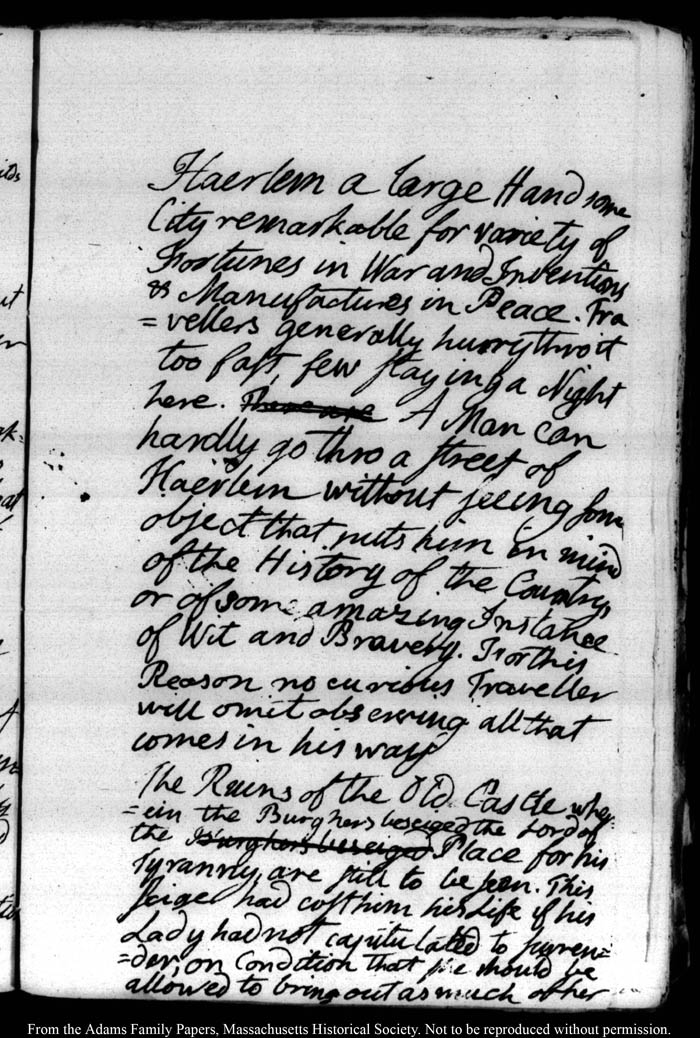 Haerlem a large Handsome
City remarkable for variety of
Fortunes in War and Inventions
& Manufactures in Peace. Tra
=vellers generally hurry thro it
too fast, few staying a Night
here. There are A Man can
hardly go thro a street of
Haerlem without seeing some
object that puts him in mind
of the History of the Country
or of some amazing Instance
of Wit and Bravery. For this
Reason no curious Traveller
will omit observing all that
comes in his way
The Ruins of the Old Castle wher
=ein the Burghers beseiged the Lord of
the Burghers beseiged Place for his
Tyranny, are still to be seen. This
seige had cost him his Life if his
Lady had not capitulated to surren=
=der, on Condition that she should be
allowed to bring out as much of her
From the Adams Family Papers, Massachusetts Historical Society. Not to be reproduced without permission.